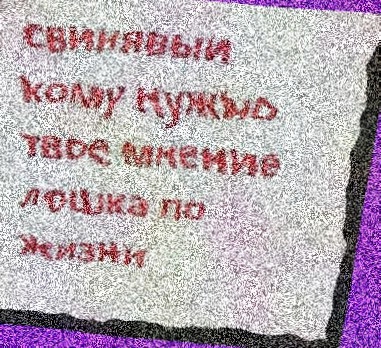 свинявый
кому нужно
твое мнение
лошка по
жизни